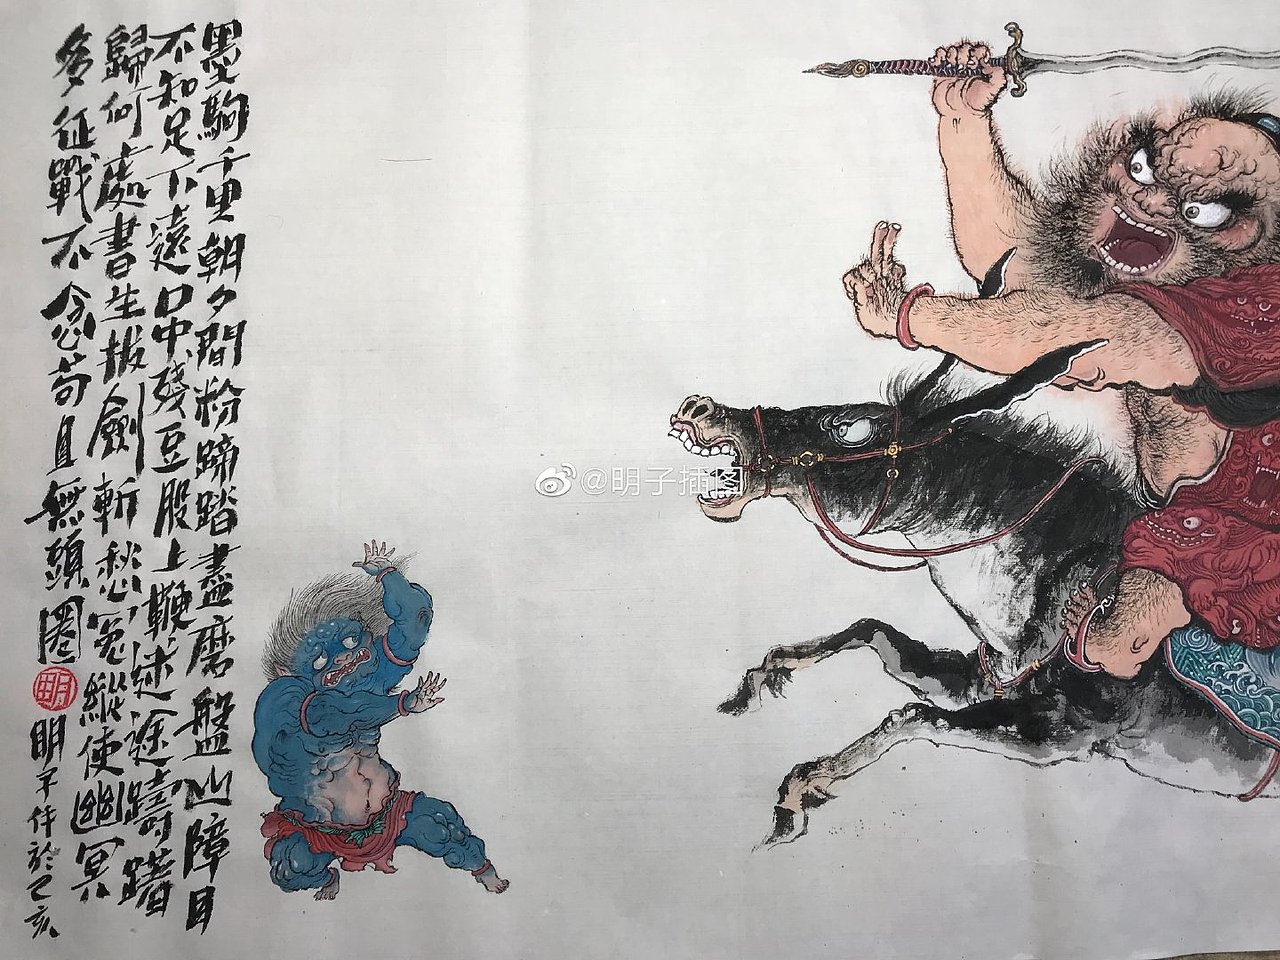 墨駒千里朝夕間粉蹄踏盡磨盤山障目
不知足下遠口中殘豆股上鞭迷途躊躇
歸何處書生拔劍斬愁冤縱使幽冥
多征戰不念苟且無頭圈
明
明子作於己亥
@明子插图